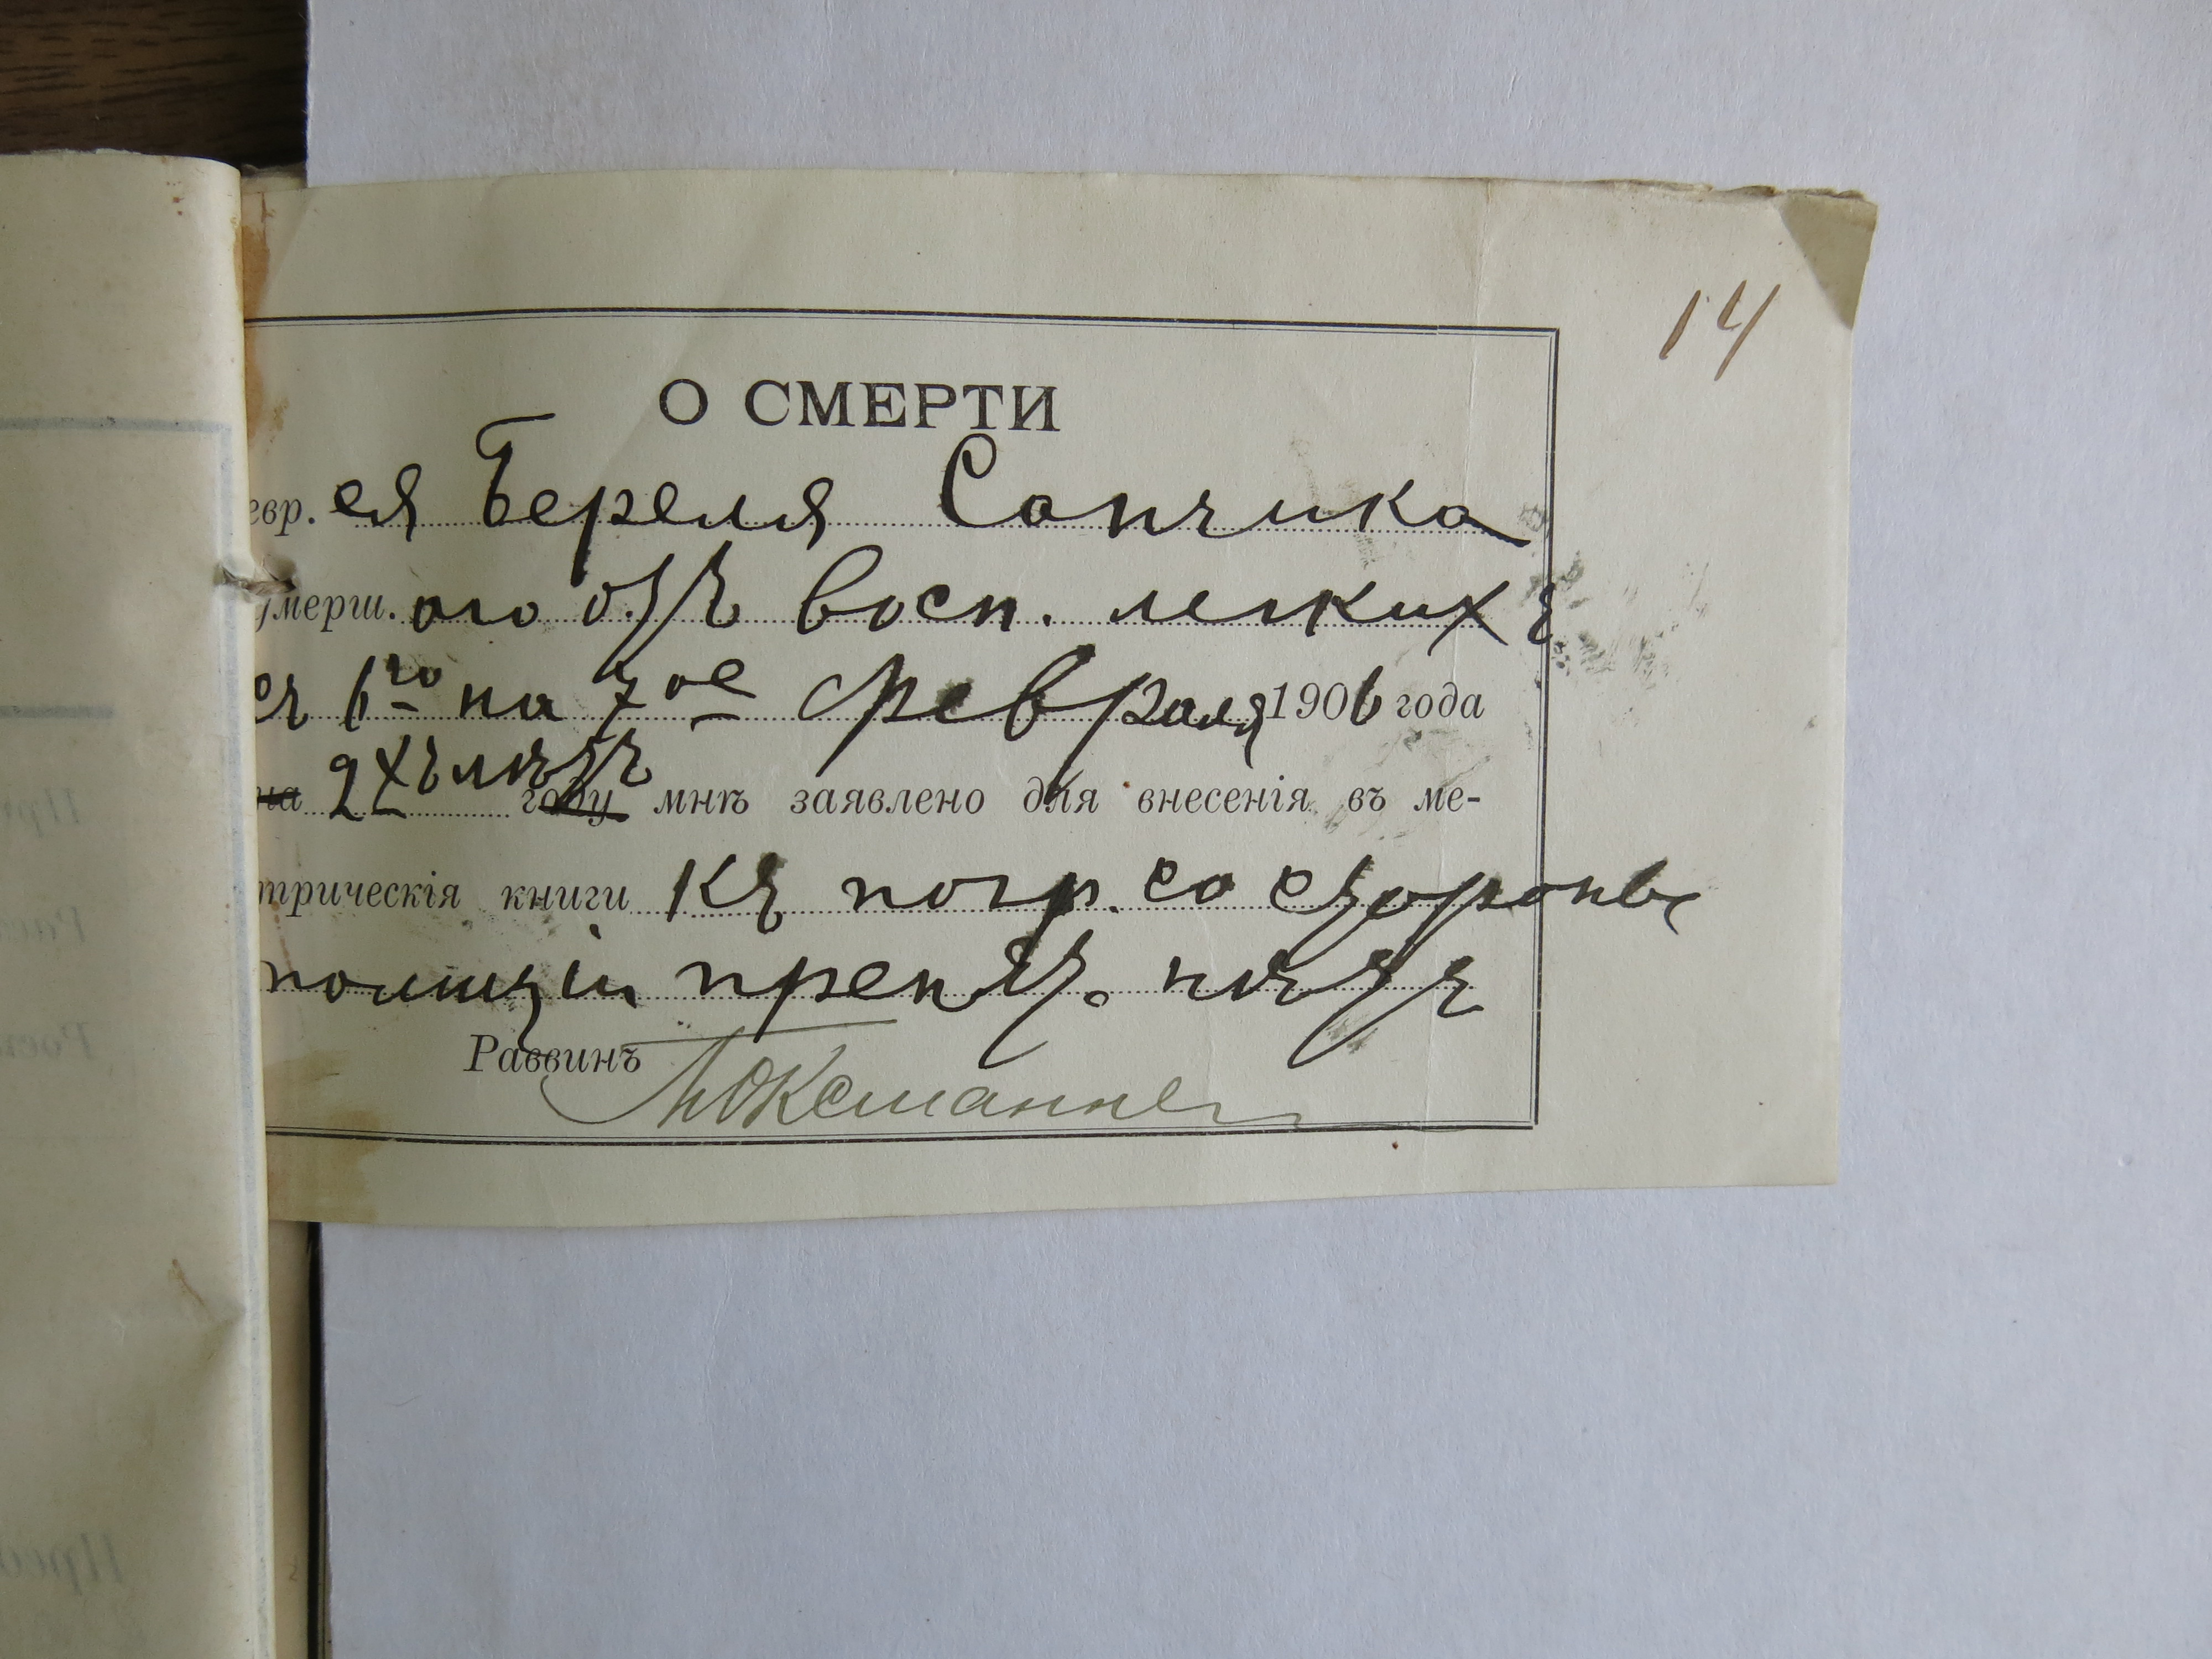 14
О СМЕРТИ
евр. ея Береля Сапчика
умерш. аго отъ восп. легкихъ
съ 6го на 7ое Февраля 1906 года
на 2хъ лѣтъ году мнѣ заявлено для внесенія въ ме-
трическія книги Къ погр. со стороны
полиціи преп. нѣтъ
Раввинъ